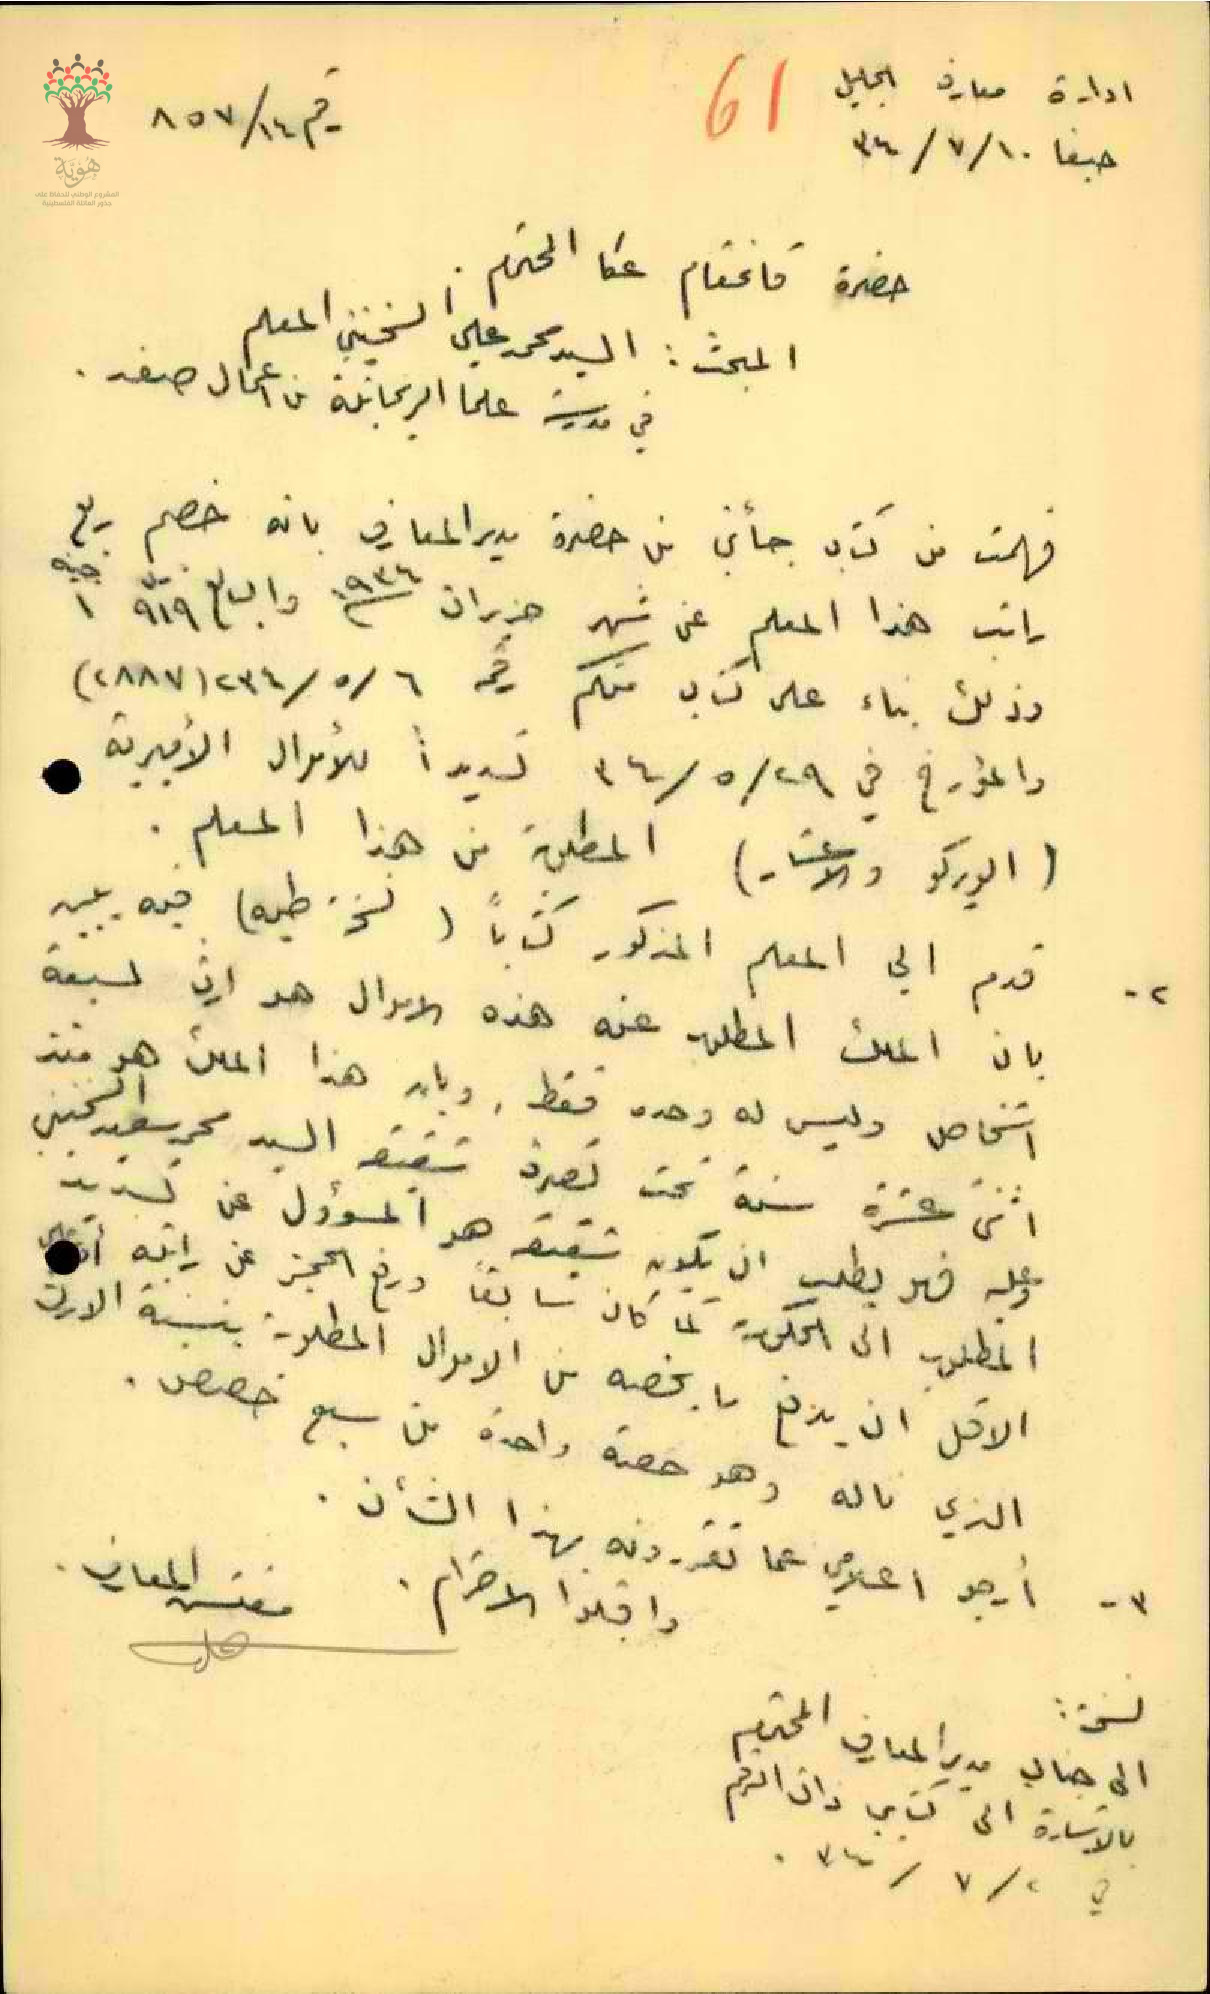 ادارة معارف الجليل
حيفا ١٠/٧/٣٤
61
رقم ١٤/٨٥٧
هوية
المشروع الوطني للحفاظ على
جذور العائلة الفلسطينية
حضرة قائمقام عكا المحترم.
المبحث: السيد محمد علي السخنيني المعلم
في مدرسة علما الريحانية من اعمال صفد.
فهمت من كتاب جأني من حضرة مدير المعارف بانه خصم ربع
راتب هذا المعلم عن شهر حزيران ١٩٣٤ والبالغ ٩١٩ مل ١ جنيه
وذلك بناء على كتاب منكم رقم ٦/٥/٢٣٤(٢٨٨٧)
والمؤرخ في ٢٩/٥/٣٤ تسديداً للأموال الأميرية
(الويركو والاعشار) المطلوبة من هذا المعلم.
٢- قدم الي المعلم المذكور كتاباً ( طيه) فيه يبين
بان الملك المطلوب عنه هذه الاموال هو ارث لسبعة
اشخاص وليس له وحده فقط، وبان هذا الملك هو منذ
اثنتي عشرة سنة تحت تصرف شقيقه السيد محمد سعيد السخنيني
وعليه فهو يطلب ان يكون شقيقه هو المسؤول عن تسديد
المطلوب الى الحكومة كما كان سابقاً ورفع الحجز عن راتبه أو على
الاقل ان يدفع ما يخصه من الاموال المطلوبة بنسبة الارث
الذي ناله وهو حصة واحدة من سبع حصص.
٣- أرجو اعلامي عما تقررونه بهذا الشأن.
واقبلوا الاحترام.
مفتش المعارف.
نسخة:
الى جناب مدير المعارف المحترم
بالاشارة الى كتابي ذات الرقم
في ٢/٧/٣٤.